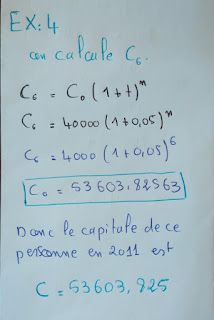 EX:4
on calcule C₆.
C₆ = C₀(1+t)ⁿ
C₆ = 40000(1+0,05)ⁿ
C₆ = 4000(1+0,05)⁶
C₀ = 53603,82563
Donc le capitale de ce
personne en 2011 est
C = 53603,825